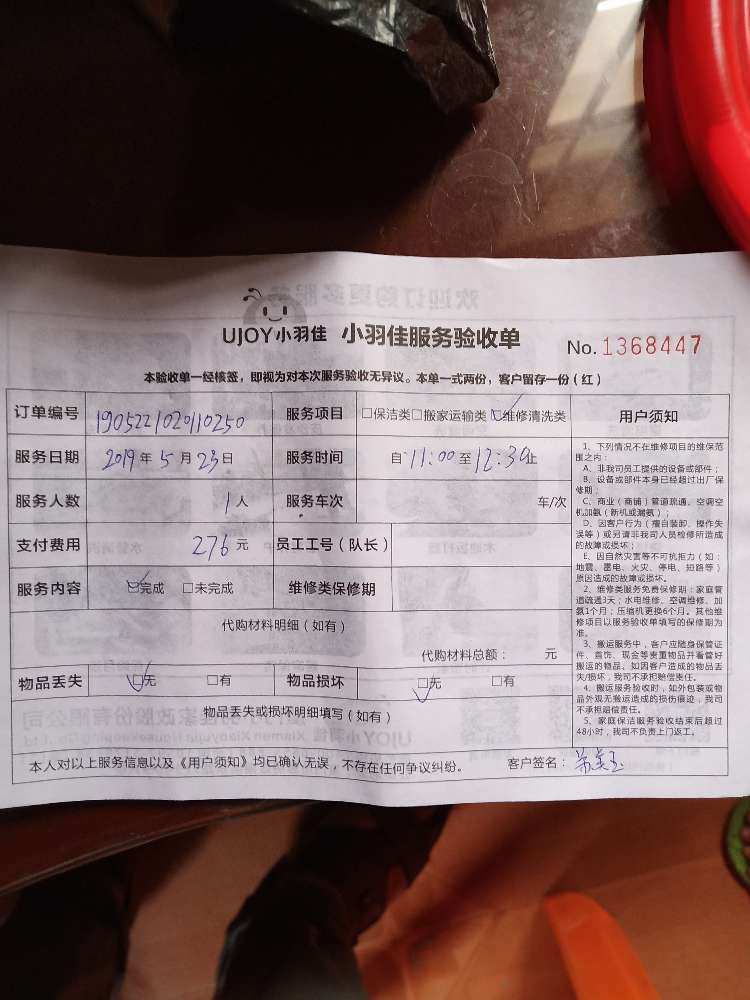 UJOY小羽佳 小羽佳服务验收单 No. 1368447
本验收单一经核签，即视为对本次服务验收无异议。本单一式两份，客户留存一份（红）
订单编号 1905221020110250 服务项目 □保洁类□搬家运输类☑维修清洗类 用户须知
服务日期 2019年5月23日 服务时间 自11:00至12:30止
服务人数 1人 服务车次 车/次
支付费用 276元 员工工号（队长）
服务内容 ☑完成 □未完成 维修类保修期
代购材料明细（如有）
代购材料总额： 元
物品丢失 ☑无 □有 物品损坏 ☑无 □有
物品丢失或损坏明细填写（如有）
本人对以上服务信息以及《用户须知》均已确认无误，不存在任何争议纠纷。 客户签名：
1、下列情况不在维修项目的维保范
围之内：
A、非我司员工提供的设备或部件；
B、设备或部件本身已经超过出厂保
修期；
C、商业（商铺）管道疏通、空调空
机加氨（新机或漏氨）；
D、因客户行为（擅自装卸、操作失
误等）或另请非我司人员检修所造成
的故障或损坏；
E、因自然灾害等不可抗拒力（如：
地震、雷电、火灾、停电、短路等）
原因造成的故障或损坏。
2、维修类服务免费保修期：家庭管
道疏通3天；水电维修、空调维修、加
氨1个月；压缩机更换6个月。其他维
修项目以服务验收单填写的保修期为
准。
3、搬运服务中，客户应随身保管证
件、首饰、现金等贵重物品并看管好
搬运的物品。如因客户造成的物品丢
失/损坏，我司不承担赔偿责任。
4、搬运服务验收时，如外包装或物
品外观无搬运造成的损伤痕迹，我司
不承担赔偿责任。
5、家庭保洁服务验收结束后超过
48小时，我司不负责上门返工。